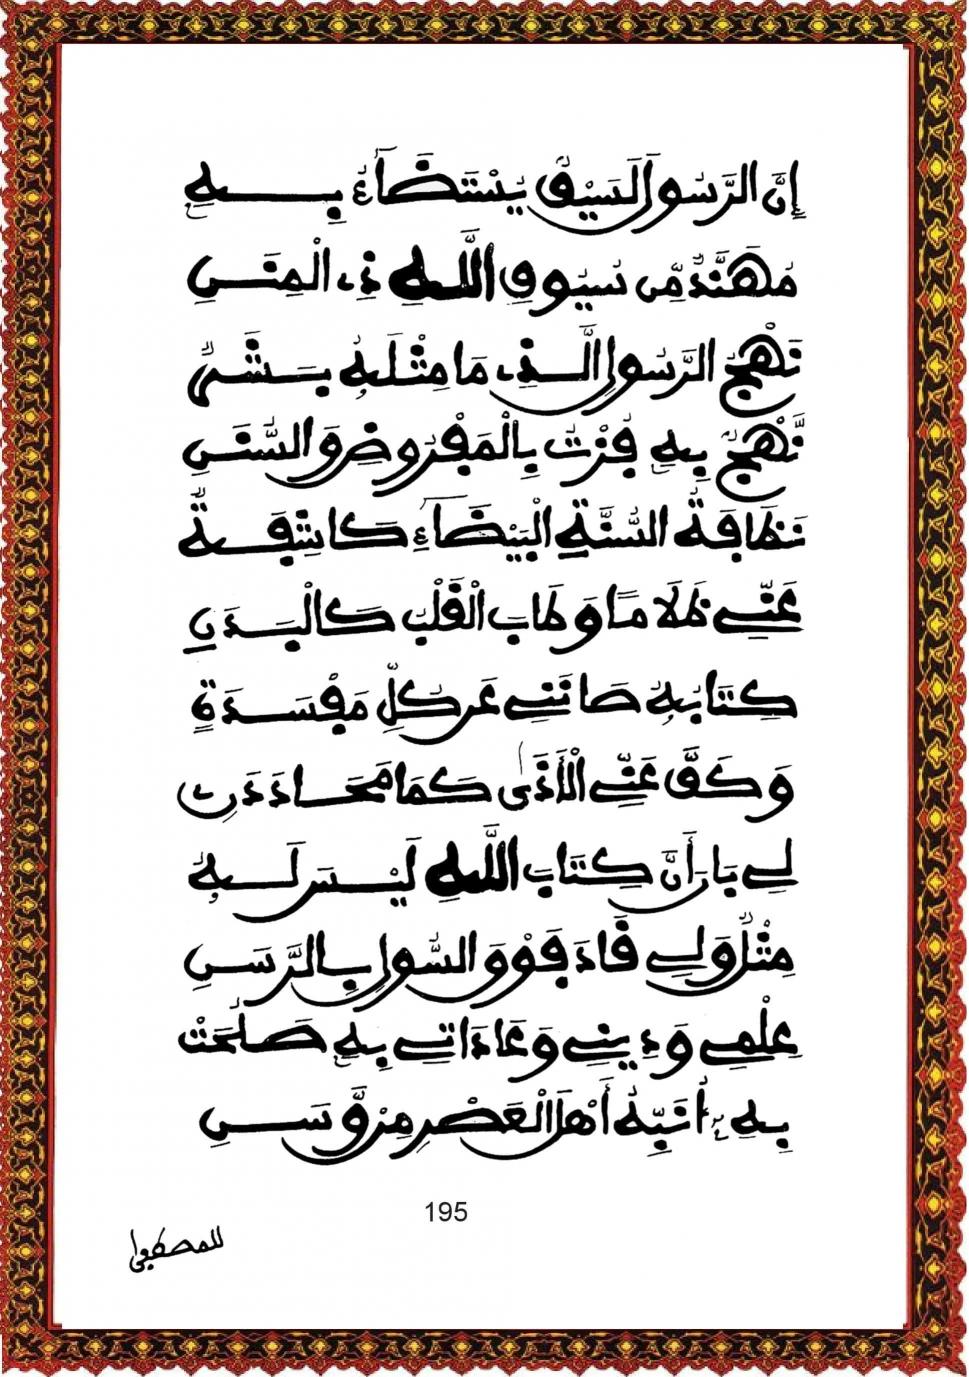 إِنَّ الرَّسُولَ لَسَيْفٌ يُسْتَضَآءُ بِهِ
مُهَنَّدٌ مِّن سُيُوفِ اللَّهِ ذِى الْمِنَنِ
نَهْجُ الرَّسُولِ الَّذِى مَا مِثْلَهُ بَشَرٌ
نَهْجٌ بِهِ فُزْتُ بِالْمَفْرُوضِ وَالسُّنَنِ
نَظَافَةُ السُّنَّةِ الْبَيْضَآءِ كَاشِفَةٌ
عَنِّي ظَلَامًا وَطَابَ الْقَلْبُ كَالْبَدَنِ
كِتَابُهُ صَانَنِي عَن كُلِّ مَفْسَدَةٍ
وَكَفَّ عَنِّي الْأَذَى كَمَا مَحَا دَدَنِ
لِي بَانَ أَنَّ كِتَابَ اللَّهِ لَيْسَ لَهُ
مِثْلٌ وَلِي قَادَ فَوْقَ السُّولِ بِالرَّسَنِ
عِلْمِي وَدِينِي وَعَادَاتِي بِهِ صَلُحَتْ
بِهِ أُنَبِّهُ أَهْلَ الْعَصْرِ مِنْ وَّسَنِ
195
للمصطفى